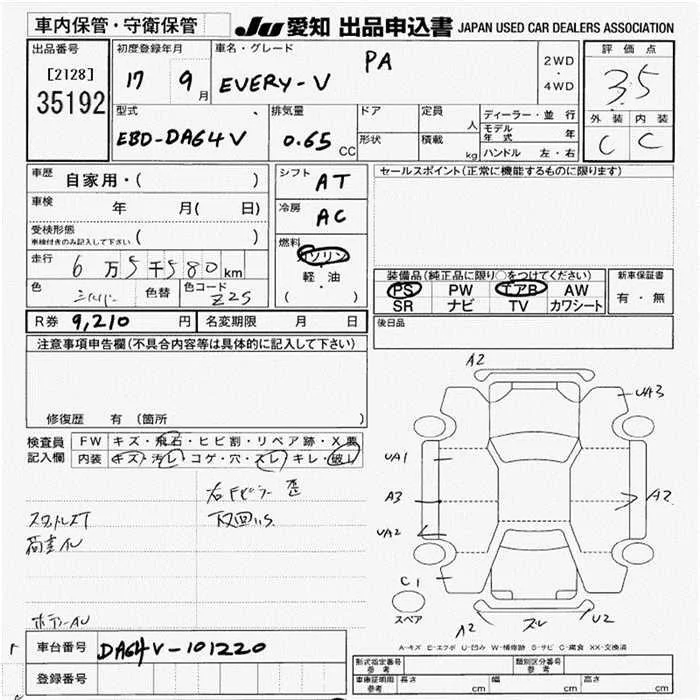 車内保管・守衛保管
JU 愛知 出品申込書 JAPAN USED CAR DEALERS ASSOCIATION
出品番号 初度登録年月 車名・グレード 評価点
[2128] 17 9月 EVERY-V PA 2WD・4WD 3.5
35192
型式 排気量 ドア 定員 人 ディーラー・並行 外装 内装
EBD-DA64V 0.65 CC 形状 積載 kg モデル年式 年 C C
ハンドル 左・右
車歴 自家用・( ) シフト AT セールスポイント(正常に機能するものに限ります)
車検 年 月( 日) 冷房 AC
受検形態
車検付きのみ記入して下さい ( )
燃料 ガソリン
走行 6万5千580km 軽・油
( )
色 シルバー 色替 色コード Z2S
装備品(純正品に限り○をつけてください) 新車保証書
PS PW エアB AW 有・無
SR ナビ TV カワシート
R券 9,210 円 名変期限 月 日 後日品
注意事項申告欄(不具合内容等は具体的に記入して下さい)
修復歴 有 (箇所
検査員 FW キズ・飛石・ヒビ割・リペア跡・X要
記入欄 内装 キズ・汚レ・コゲ・穴・スレ・キレ・破レ
A2
UA3
UA1
A3 A2
UA2
C1
スペア
A2 スレ U2
A-キズ E-エクボ U-凹み W-補修跡 S-サビ C-腐食 XX-交換済
車台番号 DA64V-101220
登録番号
形式指定番号 参考 類別区分番号 参考
車庫証明用 参考 長さ cm 幅 cm 高さ cm